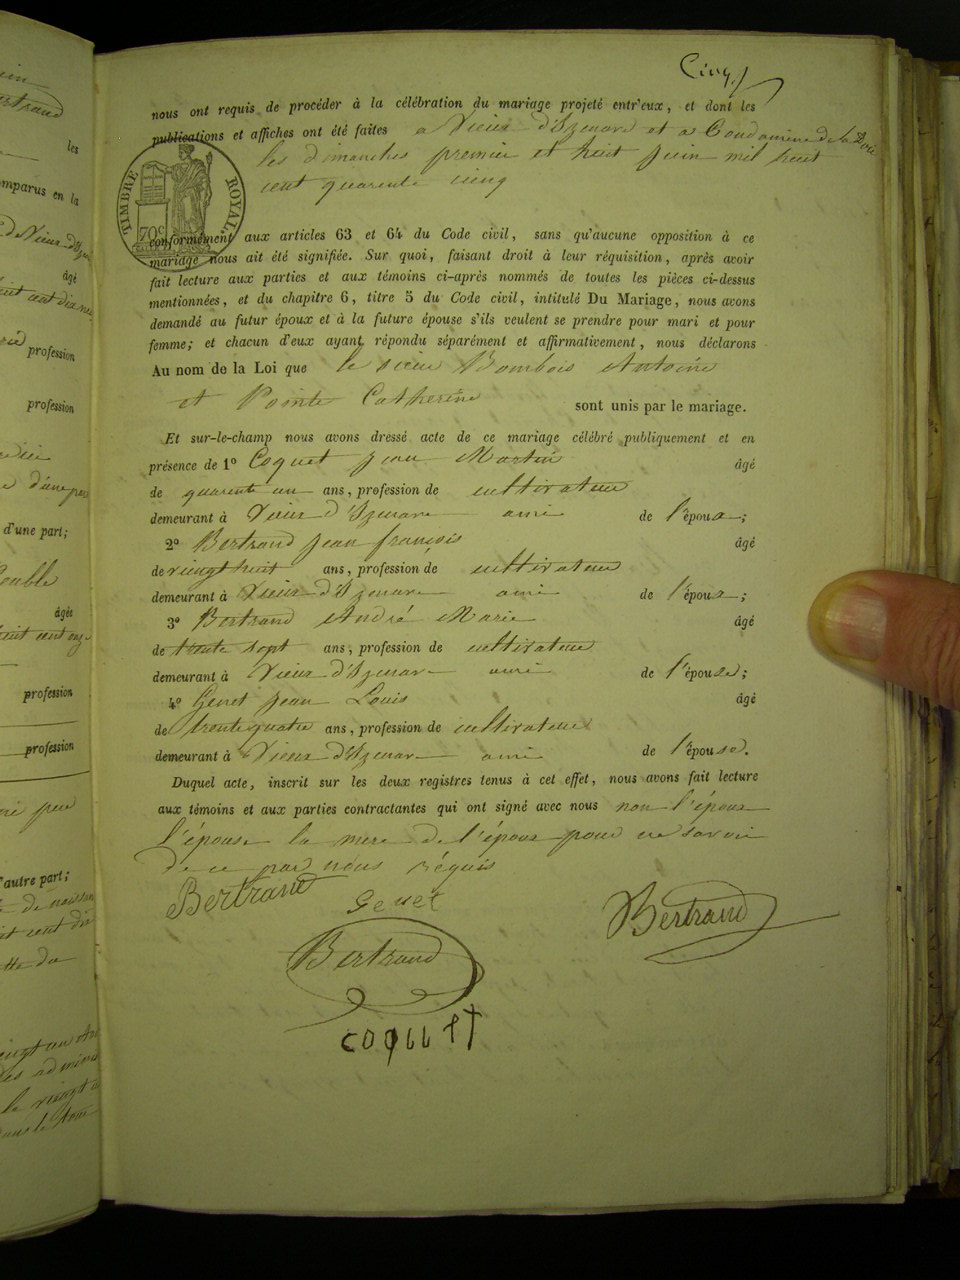 Cinq
nous ont requis de procéder à la célébration du mariage projeté entr'eux, et dont les
publications et affiches ont été faites a Vieux d'Izenave et a Condamine de la Doie
les dimanches premier et huit juin mil huit
cent quarente cinq
TIMBRE ROYAL.
70c
conformément aux articles 63 et 64 du Code civil, sans qu'aucune opposition à ce
mariage nous ait été signifiée. Sur quoi, faisant droit à leur réquisition, après avoir
fait lecture aux parties et aux témoins ci-après nommés de toutes les pièces ci-dessus
mentionnées, et du chapitre 6, titre 5 du Code civil, intitulé Du Mariage, nous avons
demandé au futur époux et à la future épouse s'ils veulent se prendre pour mari et pour
femme; et chacun d'eux ayant répondu séparément et affirmativement, nous déclarons
Au nom de la Loi que le sieur Bombois Antoine
et Pointe Catherine sont unis par le mariage.
Et sur-le-champ nous avons dressé acte de ce mariage célébré publiquement et en
présence de 1º Coquet jean Martin âgé
de quarente un ans, profession de cultivateur
demeurant à Vieux d'Izenave ami de l'époux;
2º Bertrand jean françois âgé
de vieingt huit ans, profession de cultivateur
demeurant à Vieux d'Izenave ami de l'époux;
3º Bertrand André Marie âgé
de trente sept ans, profession de cultivateur
demeurant à Vieux d'Izenave ami de l'épouse;
4º Genet jean Louis âgé
de trente quatre ans, profession de cultivateur
demeurant à Vieux d'Izenave ami de l'épouse.
Duquel acte, inscrit sur les deux registres tenus à cet effet, nous avons fait lecture
aux témoins et aux parties contractantes qui ont signé avec nous non l'époux
l'épouse la mere de l'époux pour ne savoir
de ce par nous réquis
Bertrand
Genet
Bertrand
Bertrand
coquet
les
comparus en la
âgé
profession
profession
d'une part;
âgés
profession
profession
d'autre part;